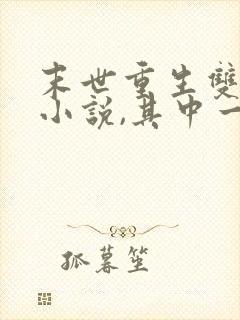 末世重生雙
小說,其中一
孤暮笙